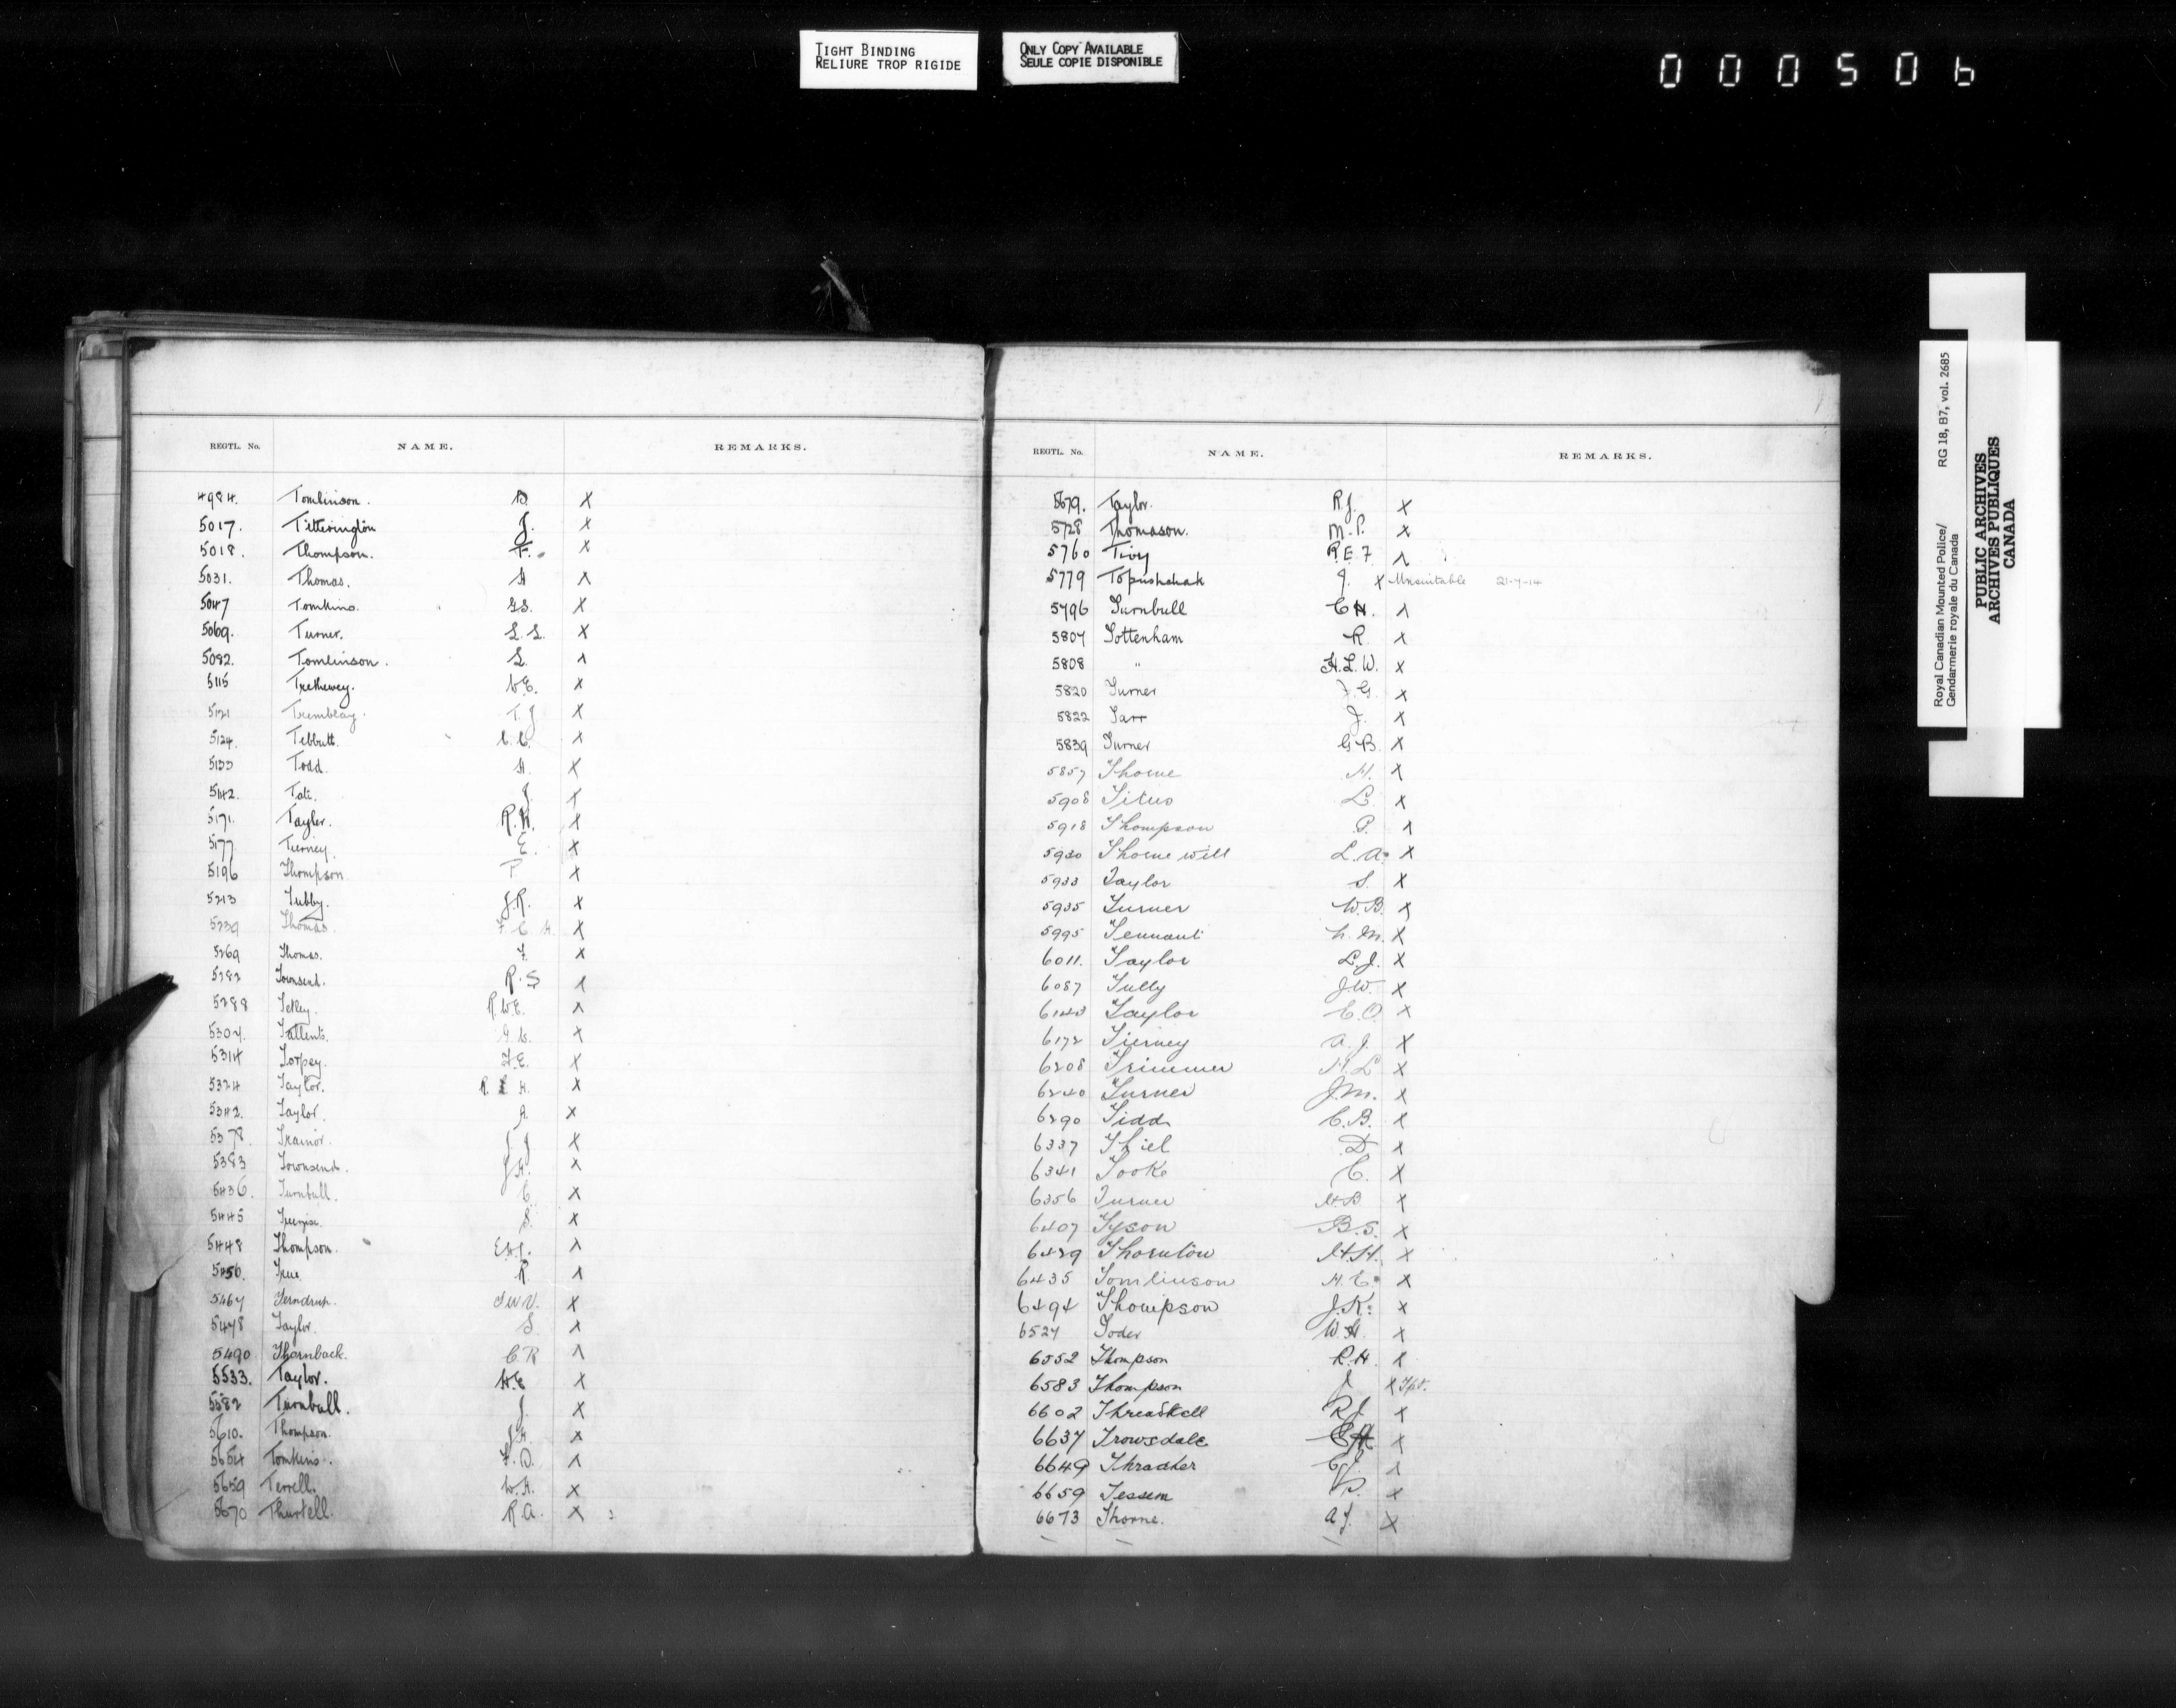 TIGHT BINDING
RELIURE TROP RIGIDE
ONLY COPY AVAILABLE
SEULE COPIE DISPONIBLE
000506
REGTL. No. NAME. REMARKS.
4984. Tomlinson. B. X
5017. Titterington J. X
5018. Thompson. F. X
5031. Thomas. H X
5047 Tomkins. G.S. X
5069. Turner. L.L. X
5082. Tomlinson. L. X
5115 Trethewey. V.E. X
5121 Tremblay. T.J X
5124. Tebbutt. C.C. X
5133 Todd. H. X
5142. Tait. J. X
5171. Tayler. R.H. X
5177 Tierney. E. X
5196 Thompson P X
5213 Tubby. J.R. X
5239 Thomas F.C.H. X
5269 Thomas. F. X
5282 Townsend. R.S X
5288 Tetley. R.W.E. X
5307. Tallents. X
5314 Torpey. F.E. X
5324 Taylor. X
5342. Taylor. A. X
5378. Trainor. J.J X
5383 Townsend. J.H. X
5436. Turnbull. C. X
5445 S. X
5448 Thompson. X
5450. True R. X
5467 Terndrup. X
5478 Taylor. S X
5490 Thornback. C R X
5533. Taylor. H.E X
5582 Turnbull. J. X
5610. Thompson. J.H. X
5654 Tomkins. F.D. X
5659 Terrell. W.H. X
5670 Thurtell. R.A. X
REGTL. No. NAME. REMARKS.
5679. Taylor. R.J. X
5728 Thomason. M.P. X
5760 Tivy R.E.F. X
5779 Topushchak J. X Unsuitable 21-7-14
5796 Turnbull C H. X
5807 Tottenham R. X
5808 " H.L.W. X
5820 Turner F.G. X
5822 Tarr J. X
5839 Turner G.B. X
5857 Thorne H. X
5908 Titus L. X
5918 Thompson P. X
5930 Thornewill L.A. X
5933 Taylor S. X
5935 Turner W.B. X
5995 Tennant X
6011. Taylor L.J. X
6087 Tully J.W. X
6143 Taylor C.O. X
6172 Tierney A.J. X
6208 Trimmer H.L X
6240 Turner J.M. X
6290 Tidd C.B. X
6337 Thiel D X
6341 Tooke C. X
6356 Turner H.B X
6407 Tyson B.S. X
6429 Thornton H.H. X
6435 Tomlinson H.C. X
6494 Thompson J.K. X
6527 Toder W.H. X
6552 Thompson R.H. X
6583 Thompson J X Tpt.
6602 Threadkell R J X
6637 Trowsdale X
6649 Thrasher C J. X
6659 Tessem P. X
6673 Thorne. A J. X
Royal Canadian Mounted Police/ RG 18, B7, vol. 2685
Gendarmerie royale du Canada
PUBLIC ARCHIVES
ARCHIVES PUBLIQUES
CANADA